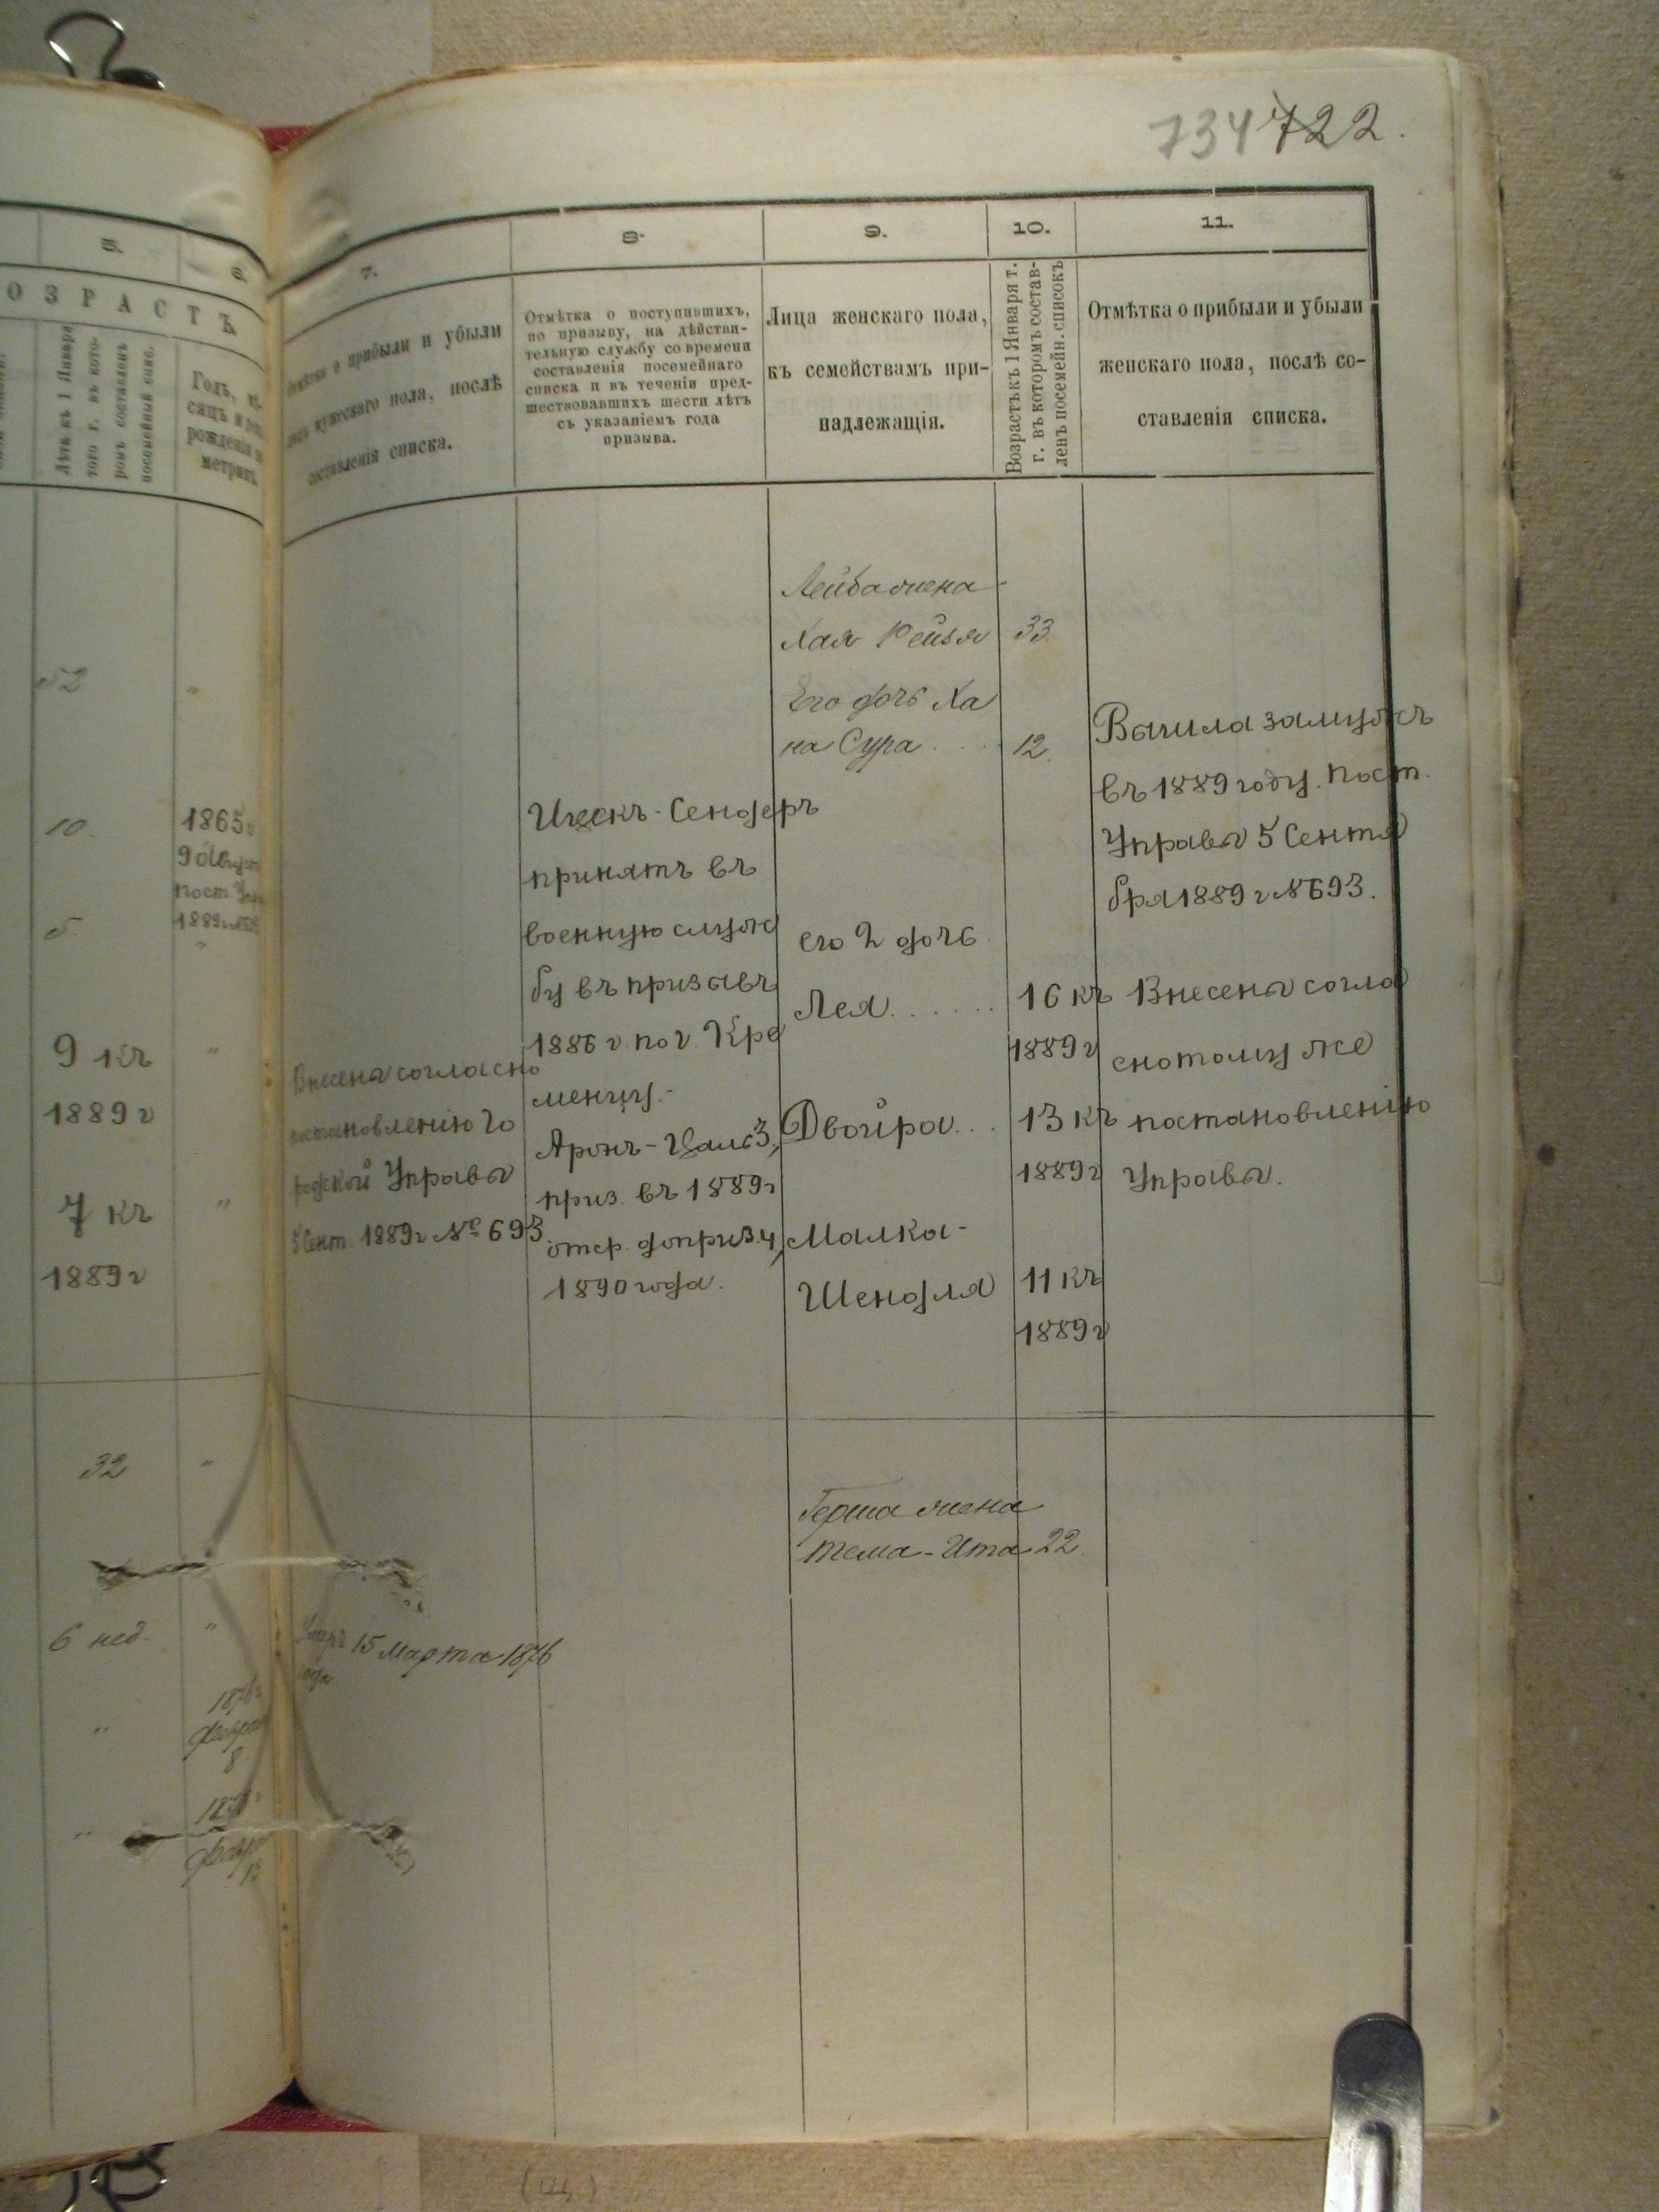 734 722.
5.
6.
7.
8.
9.
10.
11.
ОЗРАСТЪ
Лѣта къ 1 Января
того г. въ кото-
ромъ составленъ
посемейный спис.
Годъ, мѣ-
сяцъ и день
рожденія по
метрик.
Отмѣтка о прибыли и убыли
лицъ мужескаго пола, послѣ
составленія списка.
Отмѣтка о поступившихъ,
по призыву, на дѣйстви-
тельную службу со времени
составленія посемейнаго
списка и въ теченіи пред-
шествовавшихъ шести лѣтъ
съ указаніемъ года
призыва.
Лица женскаго пола,
къ семействамъ при-
надлежащія.
Возрастъ къ 1 Января т.
г. въ которомъ состав-
ленъ посемейн. списокъ
Отмѣтка о прибыли и убыли
женскаго пола, послѣ со-
ставленія списка.
52 "
10.
1865 г
9 Августа
пост Упр
1889 г
5 "
9 къ "
1889 г
7 къ "
1889 г
Внесены согласно
постановленію Го
родской Управы
5 Сент. 1889 г № 693
Ицекъ-Сендеръ
принятъ въ
военную служ
бу въ призывъ
1886 г. по г. Кре
менцу.-
Аронъ-
приз. въ 1889 г
отср. до приз.
1890 года.
Лейба жена
Хая Рейзя 33.
Его дочь Ха
на Сура . . . . 12.
его 2 дочь
Лея . . . . . . 16 къ
1889 г
Двойра . . . 13 къ
1889 г
Малка-
Шендля 11 къ
1889 г
Вышла замужъ
въ 1889 году. Пост.
Управы 5 Сентя
бря 1889 г № 693.
Внесены согла
сно тому же
постановленію
Управы.
32 "
Герша жена
Тема-Ита 22.
6 нед. "
Умеръ 15 Марта 1876
года
"
8
"